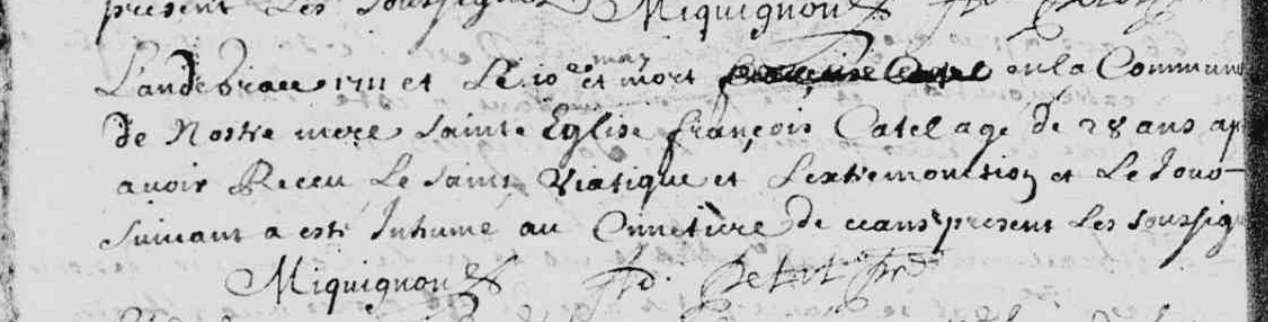 present Les soussignes Miquignon
L'an de grace 1711 et Le 10e may est mort en la Commun
de Nostre mere sainte Eglise françois Catel agé de 28 ans ap
avoir Receu Le saint Viatique et L'extremonction et Le Jour
suivant a esté Inhumé au Cimetiere de ceans present Les soussig
Miquignon